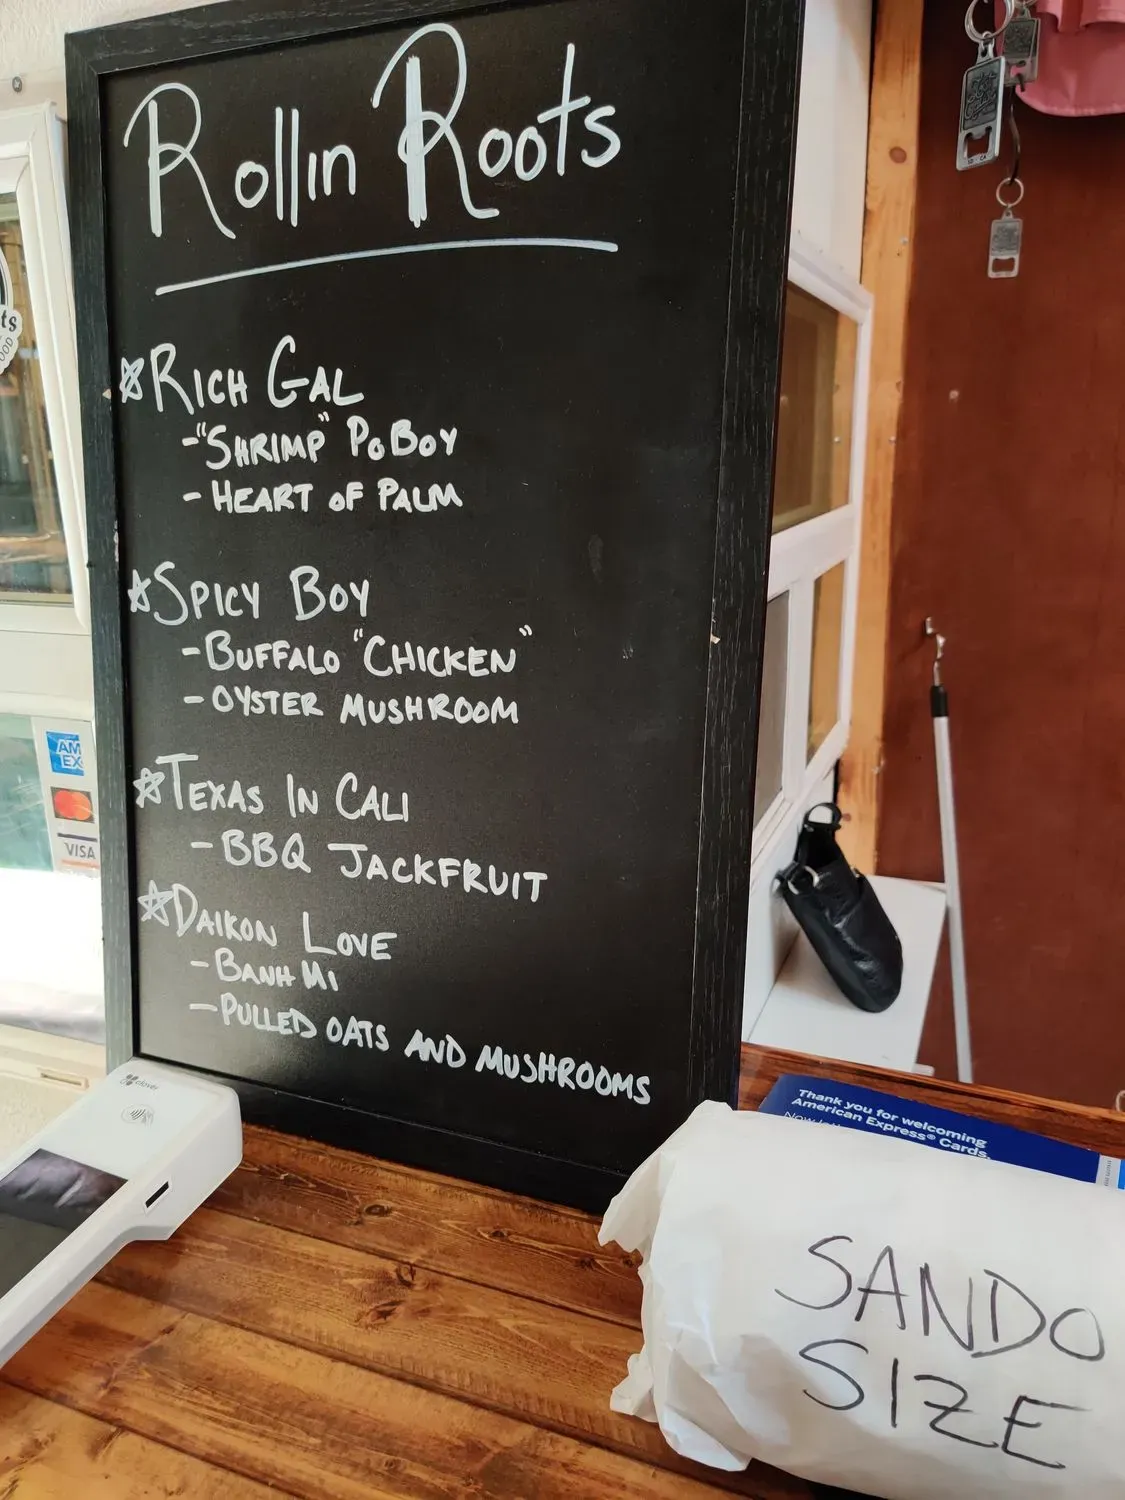 Rollin Roots
☆ RICH GAL
- "SHRIMP" PO BOY
- HEART OF PALM
☆ SPICY BOY
- BUFFALO "CHICKEN"
- OYSTER MUSHROOM
☆ TEXAS IN CALI
- BBQ JACKFRUIT
☆ DAIKON LOVE
- BANH MI
- PULLED OATS AND MUSHROOMS
ts
OOD
AM
EX
VISA
clover
Thank you for welcoming
American Express® Cards.
SANDO
SIZE
SD CA